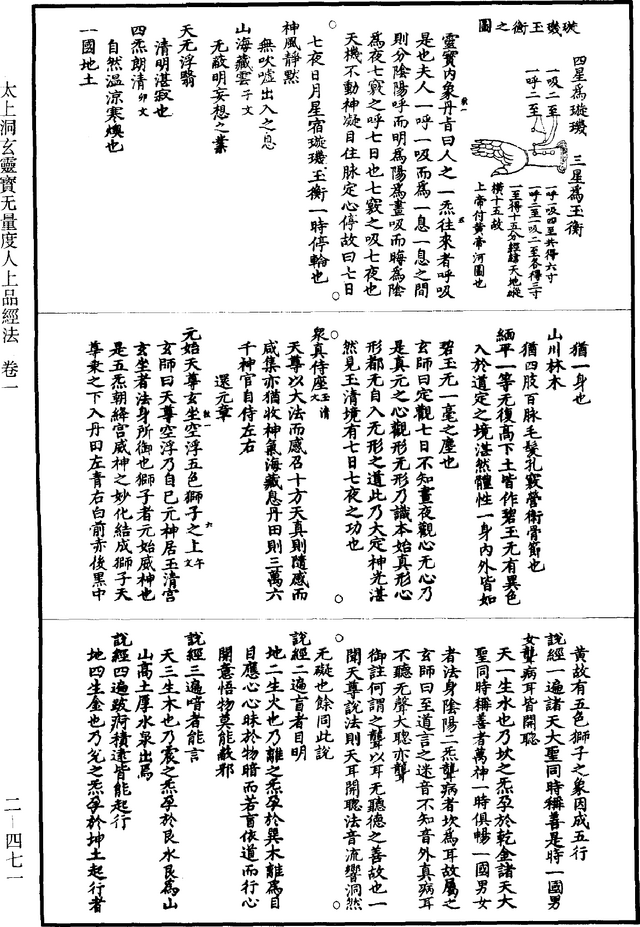 璇璣玉衡之圖
四星爲璇璣　三星爲玉衡
一吸二至
一呼二至
一呼一吸四至共得六寸
一呼二至一吸二至各得三寸
一至得十五分經緯天地縱
橫十五故
上帝付黄帝河圖也
靈寶内象丹旨曰人之一炁往來者呼吸
是也夫人一呼一吸而爲一息一息之間
則分陰陽呼而明爲陽爲晝吸而晦爲陰
爲夜七竅之呼七日也七竅之吸七夜也
天機不動神凝目住脉定心停故曰七日
七夜日月星宿璇璣玉衡一時停輪也
神風靜黙
無吹噓出入之息
山海藏雲子文
无蔽明妄想之業
天无浮翳
清明湛寂也
四炁朗清卯文
自然温涼寒燠也
一國地土
猶一身也
山川林木
猶四肢百脉毛髮孔竅營衛骨節也
緬平一等无復高下土皆作碧玉无有異色
入於道定之境湛然體性一身内外皆如
碧玉无一毫之塵也
玄師曰定觀七日不知晝夜觀心无心乃
是真元之心觀形无形乃識本始真形心
形都无自入无形之道此乃大定神光湛
然見玉清境有七日七夜之功也
衆真侍座玉清文
天尊以大法而感召十方天真則隨感而
咸集亦猶收神氣海藏息丹田則三萬六
千神官自侍左右
還元章
元始天尊玄坐空浮五色獅子之上午文
玄師曰天尊空浮乃自己元神居玉清宫
玄坐者法身所御也獅子者元始威神也
是五炁朝絳宫威神之妙化結成獅子天
尊乘之下入丹田左青右白前赤後黑中
黄故有五色獅子之象因成五行
說經一遍諸天大聖同時稱善是時一國男
女聾病耳皆開聰
天一生水也乃坎之炁孕於乾金諸天大
聖同時稱善者萬神一時俱暢一國男女
者法身陰陽二炁聾病者坎爲耳故屬之
玄師曰至道言之迷音不知音外真病耳
不聽无聲大聰亦聾
御註何謂之聾以耳无聽德之善故也一
聞天尊說法則天耳開聰法音流響洞然
无礙也餘同此說
說經二遍盲者目明
地二生火也乃離之炁孕於巽木離爲目
目應心心昧於物暗而若盲依道而行心
開意悟物莫能蔽邪
說經三遍喑者能言
天三生木也乃震之炁孕於艮水艮爲山
山高土厚水泉出焉
說經四遍跛痾積逮皆能起行
地四生金也乃兌之炁孕於坤土起行者
太上洞玄靈寳无量度人上品經法　卷一
二－四七一